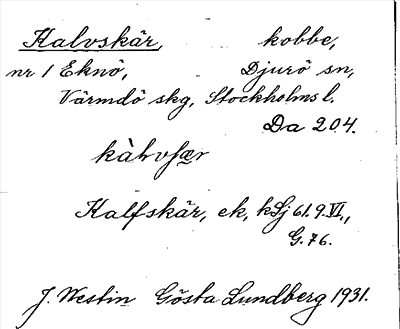 Kalvskär, kobbe,
nr 1 Eknö, Djurö sn,
Värmdö skg, Stockholms l.
Da 204.
kàlvʃær
Kalfskär, ek, kSj 61.9.VI.,
G. 76.
J. Westin Gösta Lundberg 1931.